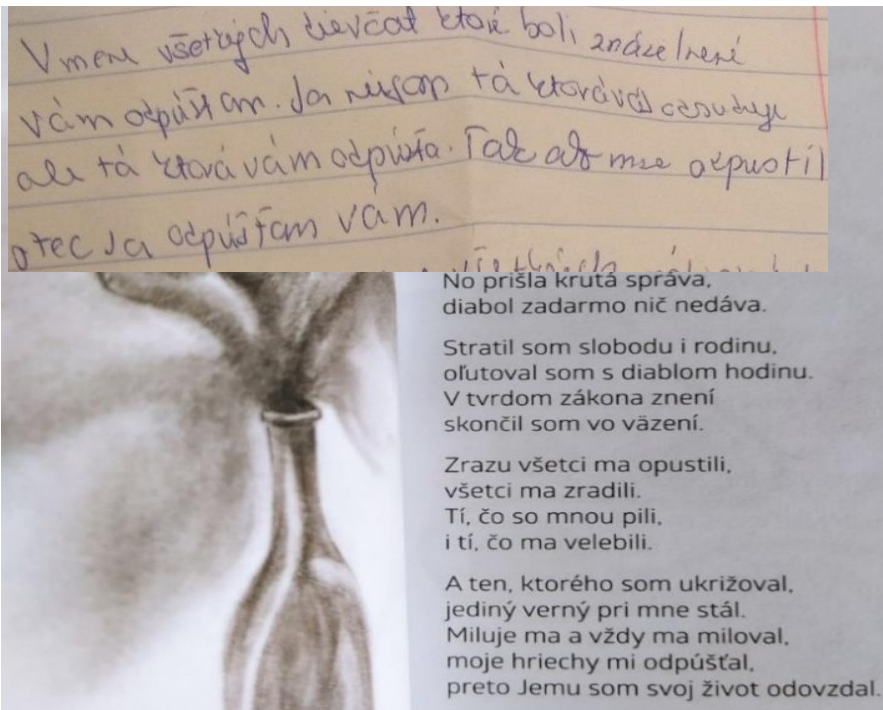 V mene všetkých dievčat ktoré boli znásilnené
vám odpúšťam. Ja niesom tá ktorá vás odsudzuje
ale tá ktorá vám odpúšťa. Tak ako mne odpustil
otec Ja odpúšťam vám.
všetkých
No prišla krutá správa,
diabol zadarmo nič nedáva.
Stratil som slobodu i rodinu,
oľutoval som s diablom hodinu.
V tvrdom zákona znení
skončil som vo väzení.
Zrazu všetci ma opustili,
všetci ma zradili.
Tí, čo so mnou pili,
i tí, čo ma velebili.
A ten, ktorého som ukrižoval,
jediný verný pri mne stál.
Miluje ma a vždy ma miloval,
moje hriechy mi odpúšťal,
preto Jemu som svoj život odovzdal.